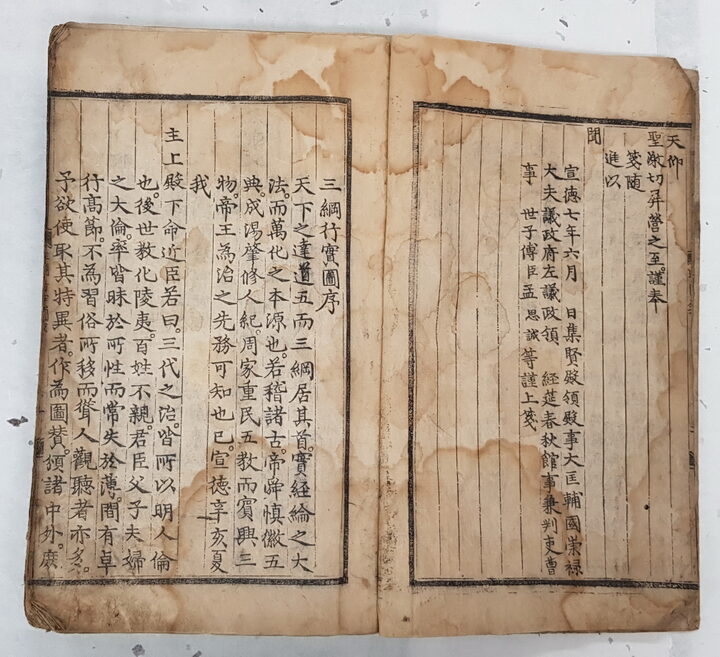 天仰
聖激切屏營之至。謹奉
箋隨
進以
聞
宣德七年六月 日集賢殿領殿事大匡輔國崇祿
大夫議政府左議政領 經筵春秋館事兼判吏曹
事 世子傅臣孟 思誠等謹上箋
三綱行實圖序
天下之達道五而三綱居其首。實經綸之大
法。而萬化之本源也。若稽諸古。帝舜慎徽五
典。成湯肇修人紀。周家重民五教而賓興三
物。帝王為治之先務可知也已。宣德辛亥夏
我
主上殿下命近臣若曰。三代之治。皆所以明人倫
也。後世教化陵夷。百姓不親。君臣父子夫婦
之大倫。率皆昧於所性而常失於薄。間有卓
行高節。不為習俗所移而聳人觀聽者亦多。
予欲使取其特異者。作為圖贊。頒諸中外。庶